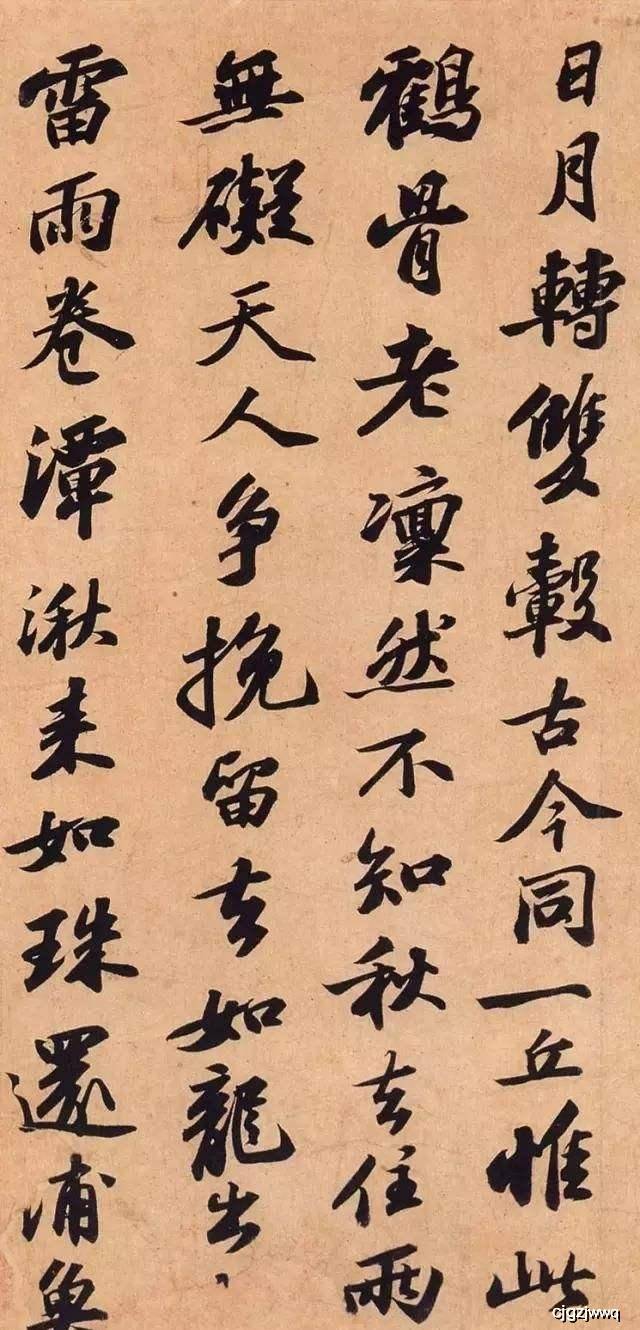 日月轉雙轂古今同一丘惟此
鶴骨老凜然不知秋去住兩
無礙天人争挽留去如龍出、
雷雨卷潭湫来如珠還浦魚
cjgzjwwq